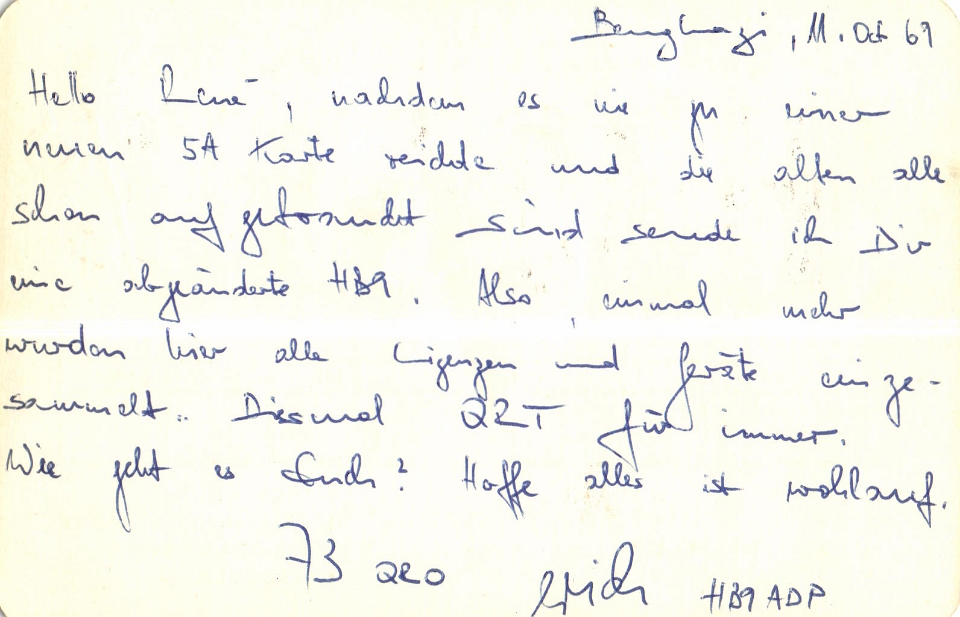 Benghazi, 11. Oct 69
Hello René, nachdem es nie zu einer
neuen 5A Karte reichte und die alten alle
schon aufgebraucht sind sende ich Dir
eine abgeänderte HB9. Also, einmal mehr
wurden hier alle Lizenzen und Geräte einge-
sammelt.. Diesmal QRT für immer.
Wie geht es Euch? Hoffe alles ist wohlauf.
73 QRO Erich HB9ADP